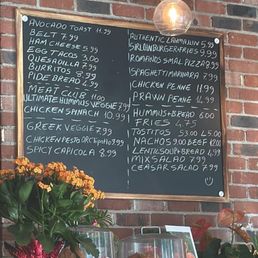 AVOCADO TOAST 11.99
BELT 7.99
HAM CHEESE 5.99
EGG TACOS 3.00
QUESADILLA 7.99
BURRITOS 8.99
PIDE BREAD 4.99
MEAT CLUB 11.00
ULTIMATE HUMMUS VEGGIE 7.99
CHICKEN SPINACH 10.99
GREEK VEGGIE 7.99
CHICKEN PESTO OR
SPICY CAPICOLA 8.99
AUTHENTIC LAHMAJUN 5.99
SIRLOIN BURGER FRIES 9.99
ROMANOS SMALL PIZZA 9.99
SPAGHETTI MARINARA 7.99
CHICKEN PENNE 11.99
PRAWN PENNE 14.99
HUMMUS+BREAD 6.00
FRIES 4.75
TOSTITOS S3.00 L5.00
NACHOS 9.00 BEEF 12.00
LENTIL SOUP+BREAD 4.99
MIX SALAD 7.99
CEASAR SALAD 7.99